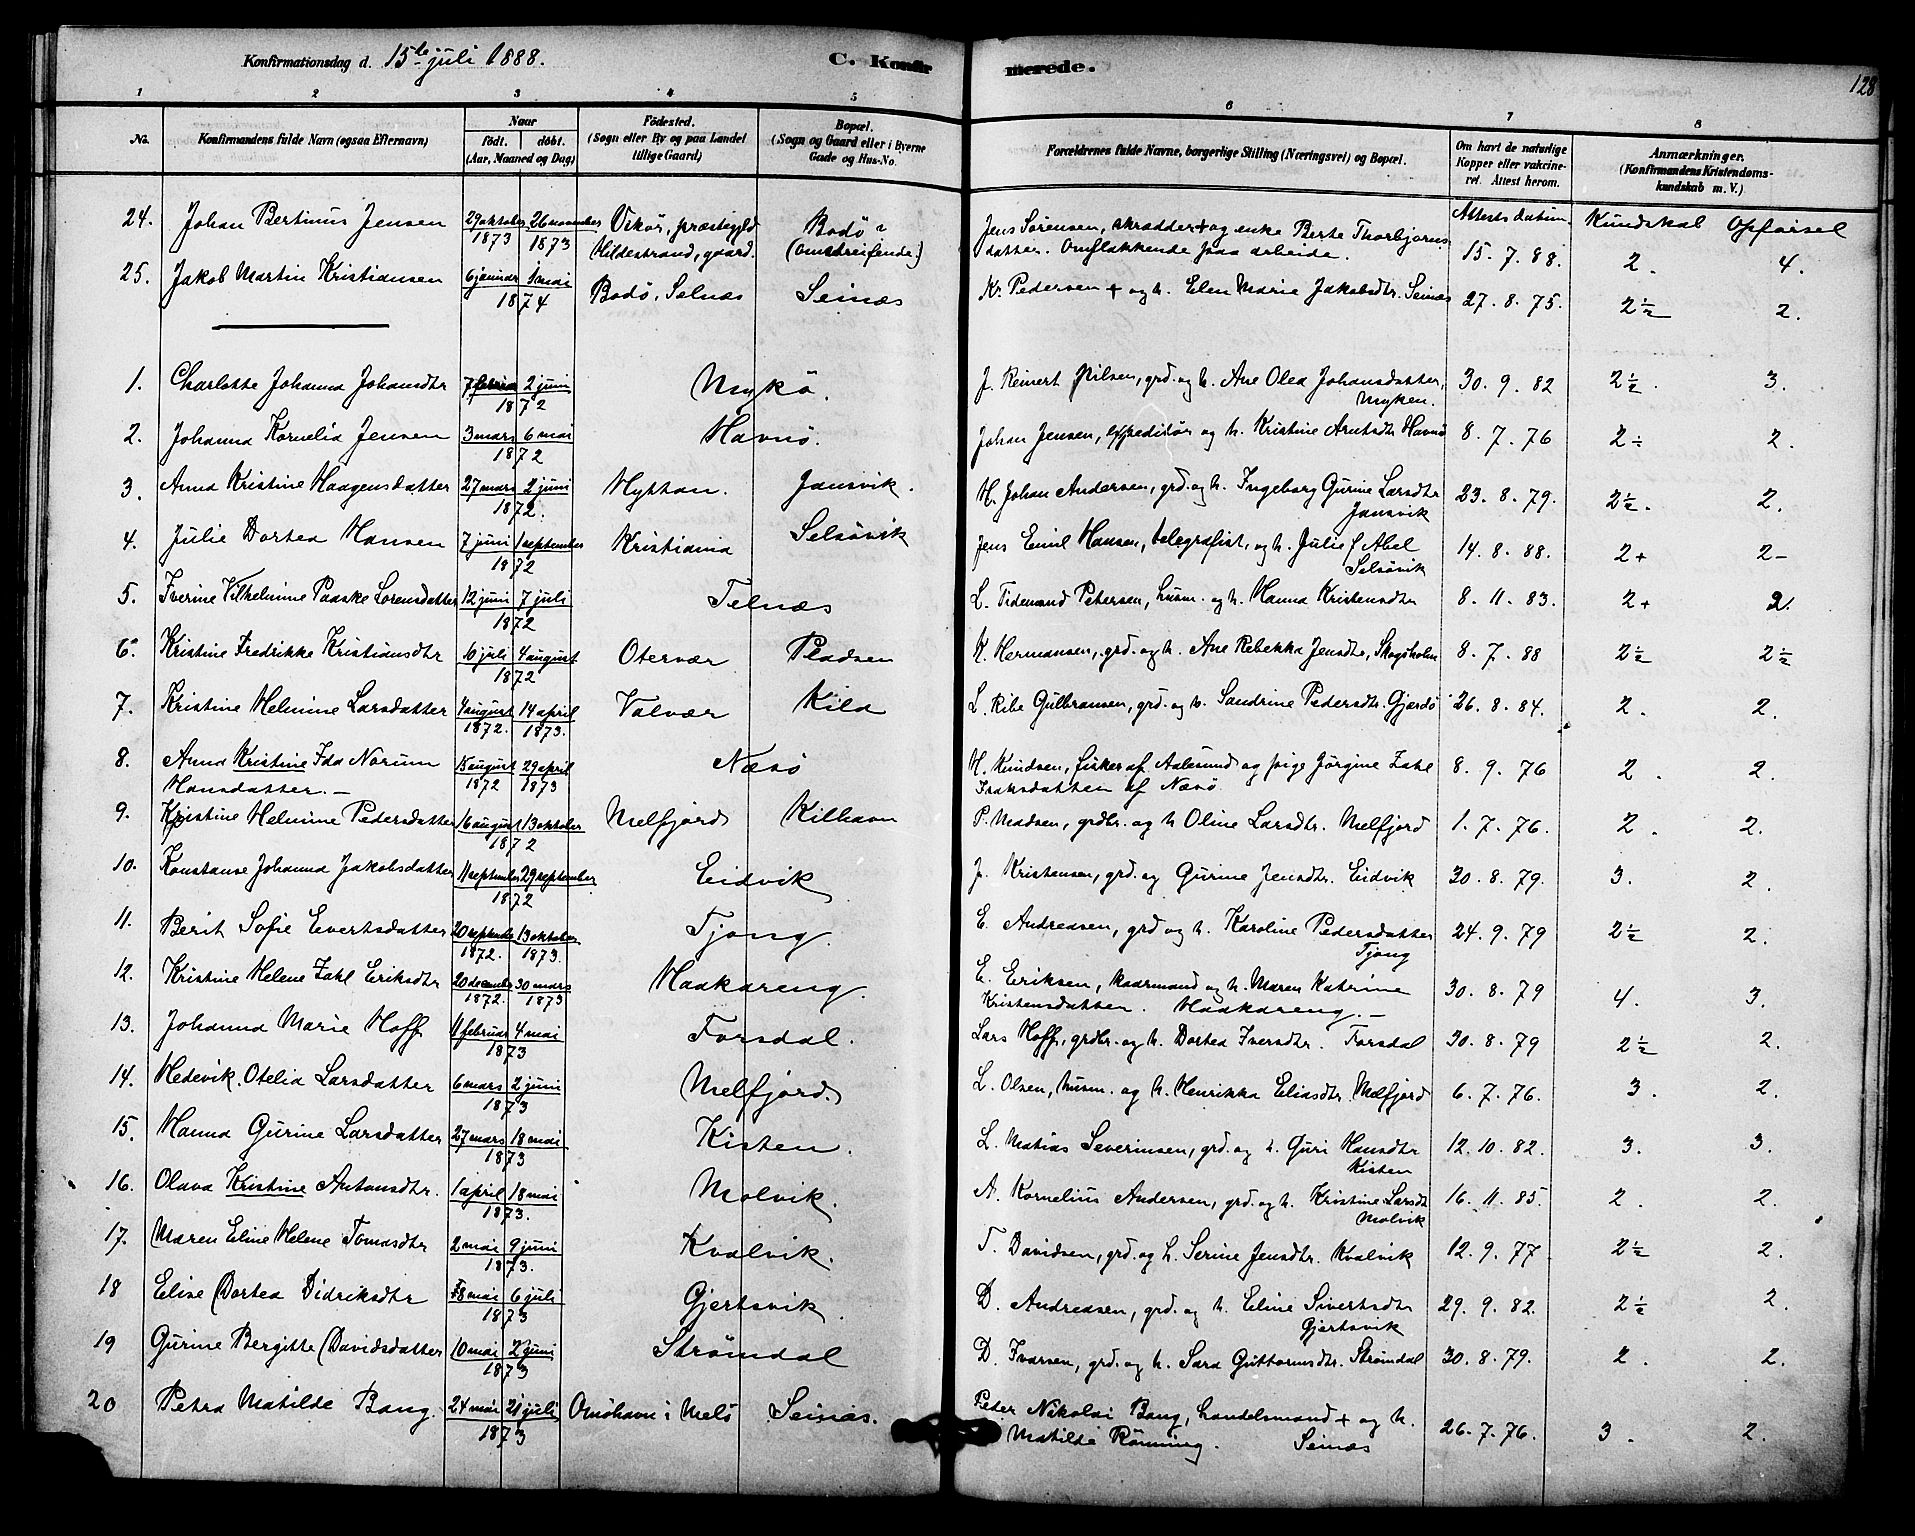 Konfirmationsdag d. 15de juli 1888.
C. Konfirmerede.
128
1 2 3 4 5 6 7 8
No.
Konfirmandens fulde Navn (ogsaa Efternavn)
Naar
født. døbt.
(Aar, Maaned og Dag)
Fødested.
(Sogn eller By og paa Landet
tillige Gaard)
Bopæl.
(Sogn og Gaard eller i Byerne
Gade og Hus-No.
Forældrenes fulde Navne, borgerlige Stilling (Næringsvei) og Bopæl.
Om havt de naturlige
Kopper eller vakcine-
ret. Attest herom.
Anmærkninger.
(Konfirmandens Kristendoms-
kundskab m. V.)
Attests datum. Kundskab Opførsel
24. Johan Bertinus Jensen 29 oktober 1873 26 november 1873 Vikør, præstegjeld Hildestrand, gaard. Bodø (omstreifende.) Jens Sørensen, skrædder + og enke Berte Thorbjørns
datter. Omflakkende paa arbeide. 15. 7. 88. 2. 4.
25. Jakob Martin Kristiansen 6 januar 1 mai 1874 Bodø, Selnæs Seinæs Kr. Pedersen + og h. Elen Marie Jakobsdtr. Seinæs 27. 8. 75. 2½ 2.
1. Charlotte Johanna Johansdtr 7 februar 2 juni 1872 Mykø. J. Reinert Nilsen, grd. og h. Ane Olea Johansdatter,
Myken. 30. 9. 82 2½. 3.
2. Johanna Kornelia Jensen 3 mars 6 mai 1872 Havnø. Johan Jensen, expeditør og h. Kristine Arntsdtr Havnø 8. 7. 76 2÷ 2.
3. Anna Kristine Haagensdatter 27 mars 2 juni 1872. Hyttan. Jansvik. H. Johan Andersen, grd. og h. Ingeborg Gurine Larsdtr
Jansvik 23. 8. 79. 2½. 2.
4. Julie Dortea Hansen 7 juni 1 september 1872 Kristiania Selsøvik Jens Emil Hansen, telegrafist, og h. Julie f Abel
Selsøvik 14. 8. 88. 2+ 2-
5. Iverine Vilhelmine Paaske Lorensdatter 12 juni 7 juli 1872 Telnæs L. Tidemand Petersen, husm. og h. Hanna Kristensdtr 8. 11. 83. 2+ 2.
6. Kristine Fredrikke Kristiansdtr 6 juli 4 august 1872 Otervær Pladsen K. Hermansen, grd. og h. Ane Rebekka Jensdtr, Skogsholm 8. 7. 88 2½ 2½
7. Kristine Helmine Larsdatter 4 august 1872. 14 april 1873. Valvær Kila L. Ribe Gulbransen, grd. og h. Sandrine Pedersdtr. Gjærdø 26. 8. 84. 2. 2.
8. Anna Kristine Ida Norum
Hansdatter. 15 august 1872 29 april 1873 Næsø H. Knudsen, fisker af Aalesund og pige Jørgine Zahl
Isaksdatter af Næsø. 8. 9. 76 2. 2.
9. Kristine Helmine Pedersdatter 16 august 13 oktober 1872 Melfjord Kilhavn P. Madsen, grdbr. og h Oline Larsdtr. Melfjord 1. 7. 76. 2. 2.
10. Konstanse Johanna Jakobsdatter 11 september 29 september 1872 Eidvik J. Kristensen, grd. og Gurine Jensdtr. Eidvik 30. 8. 79. 3. 2.
11. Berit Sofie Evertsdatter 20 september 1872. 13 oktober 1873. Tjong. E. Andreasen, grd og h. Karoline Pedersdatter
Tjong 24. 9. 79 2½ 2.
12. Kristine Helene Zahl Eriksdtr 20 december 1872. 30 mars 1873 Haakareng. E. Eriksen, kaarmand og h. Maren Katrine
Kristensdatter. Haakareng. 30. 8. 79 4. 3.
13. Johanna Marie Hoff 11 februar 4 mai 1873 Forsdal. Lars Hoff, grdbr. og h. Dortea Iversdtr. Forsdal 30. 8. 79 2½ 2.
14. Hedevik Otelia Larsdatter 6 mars 2 juni 1873 Melfjord. L. Olsen, husm. og h. Henrikka Eliasdtr. Melfjord 6. 7. 76. 3. 2.
15. Hanna Gurine Larsdatter 27 mars 18 mai 1873 Kisten. L. Matias Severinsen, grd. og h. Guri Hansdtr
Kisten 12. 10. 82. 3. 3.
16. Olava Kristine Antonsdtr. 1 april 18 mai 1873. Molvik. A. Kornelius Andersen, grd. og h. Kristine Larsdt
Molvik 16. 11. 85 2. 2.
17. Maren Eline Helene Tomasdtr 2 mai 9 juni 1873. Kvalvik. T. Davidsen, grd. og h. Serine Jensdtr. Kvalvik 12. 9. 77 2½ 2.
18 Elise Dortea Didriksdtr 8 mai 6 juli 1873 Gjertsvik. D. Andreasen, grd. og h. Eline Sivertsdtr
Gjertsvik 29. 9. 82. 2½ 2.
19 Gurine Bergitte Davidsdatter 10 mai 2 juni 1873 Strømdal D. Ivarsen, grd. og h. Sara Guttormsdtr. Strømdal 30. 8. 79. 2. 2.
20 Petra Matilde Bang. 24 mai 21 juli 1873 Omøhavn i Melø Seinæs. Peder Nikolai Bang, handelsmand + og h.
Matilde Rønning. Seinæs 26. 7. 76. 3. 2.